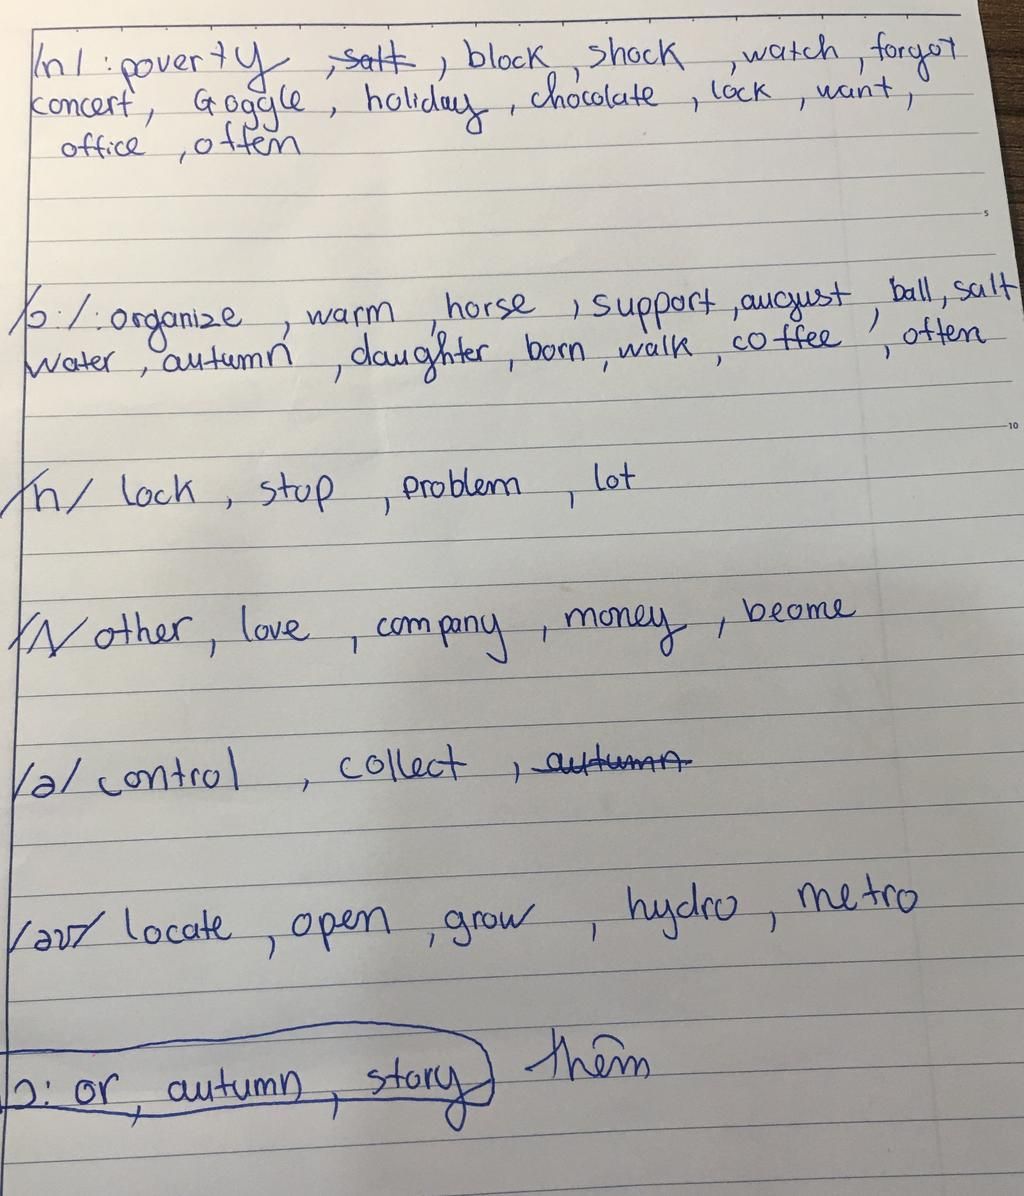 /ɒ/ : poverty , salt , block , shock , watch , forgot
concert , Goggle , holiday , chocolate , lock , want ,
office , often
5
/ɔ:/ : organize , warm , horse , support , august , ball , salt
water , autumn , daughter , born , walk , coffee , often
10
/ɒ/ lock , stop , problem , lot
/ʌ/ other , love , company , money , beome
/ə/ control , collect , autumn
/əʊ/ locate , open , grow , hydro , metro
ɔ: or , autumn , story thêm